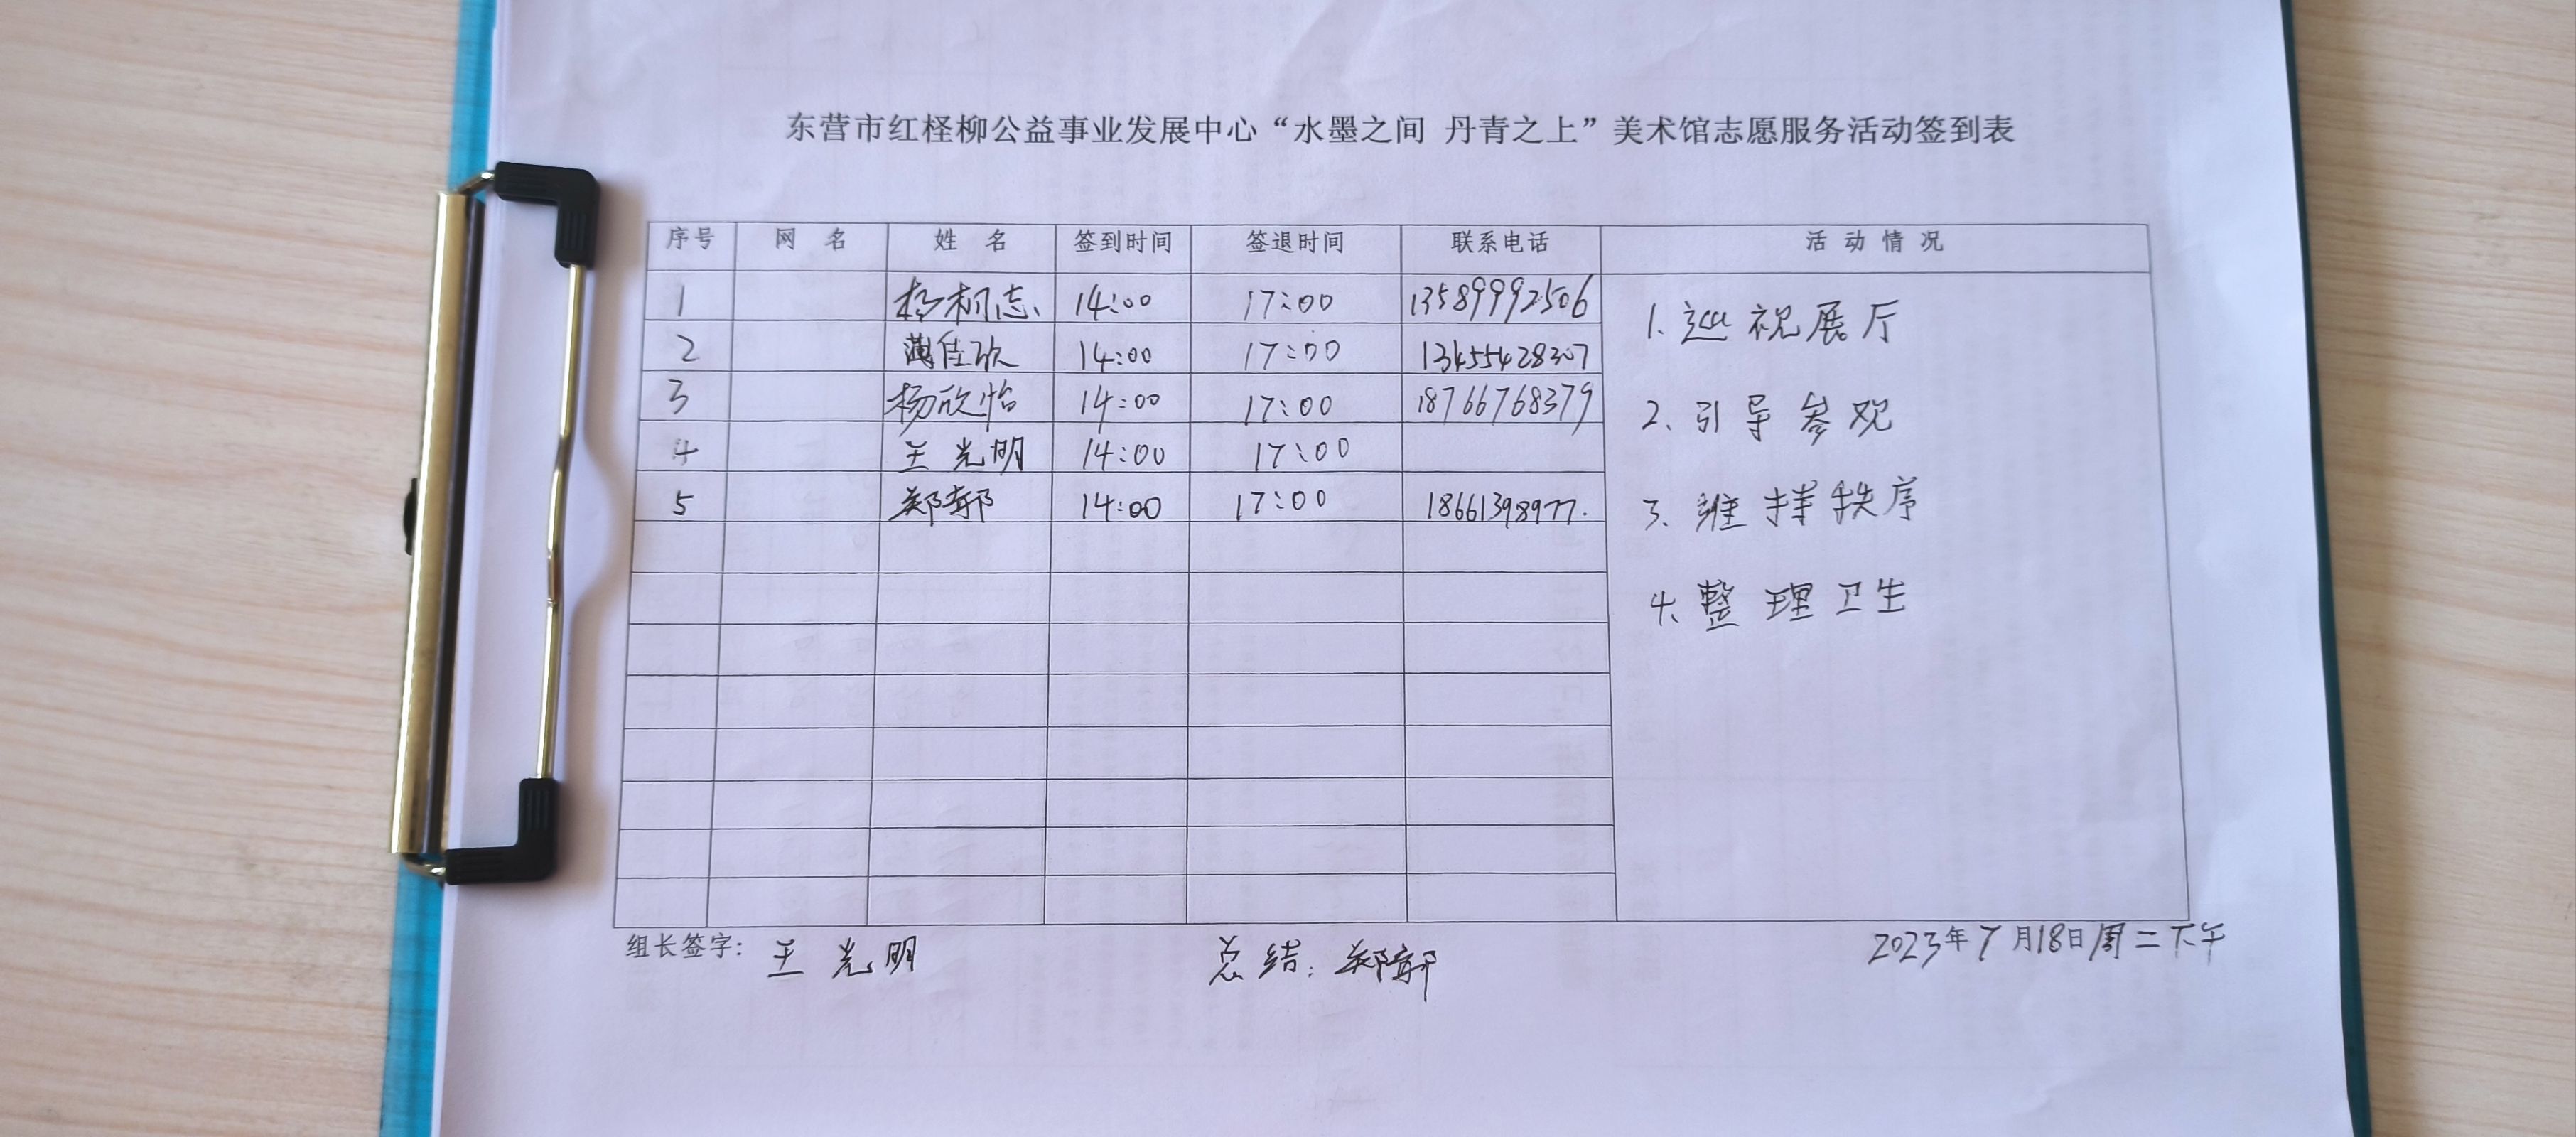 东营市红柽柳公益事业发展中心“水墨之间 丹青之上”美术馆志愿服务活动签到表
序号 网 名 姓 名 签到时间 签退时间 联系电话 活 动 情 况
1 杨桐志 14:00 17:00 13589992506
2 佳欣 14:00 17:00 13455428307
3 杨欣怡 14:00 17:00 18766768379
4 王光明 14:00 17:00
5 郑郭 14:00 17:00 18661398977.
1.巡视展厅
2、引导参观
3、维持秩序
4、整理卫生
组长签字: 王光明 总结: 2023年7月18日周二下午